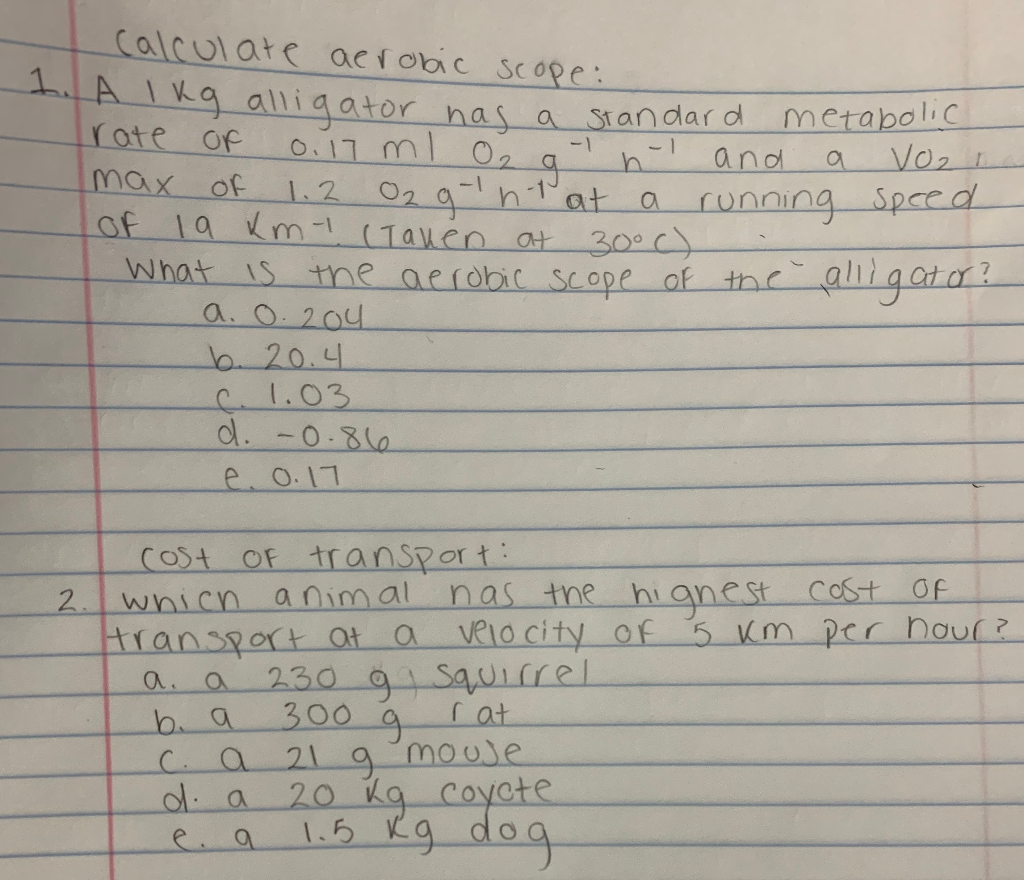 Calculate aerobic scope:
1. A 1 kg alligator has a standard metabolic
rate of 0.17 ml O₂ g⁻¹ h⁻¹ and a VO₂
max of 1.2 O₂ g⁻¹ h⁻¹ at a running speed
of 19 Km⁻¹ (Taken at 30°C)
What is the aerobic scope of the alligator?
a. 0.204
b. 20.4
c. 1.03
d. -0.86
e. 0.17
Cost of transport:
2. which animal has the highest cost of
transport at a velocity of 5 km per hour?
a. a 230 g squirrel
b. a 300 g rat
c. a 21 g mouse
d. a 20 kg coyote
e. a 1.5 kg dog